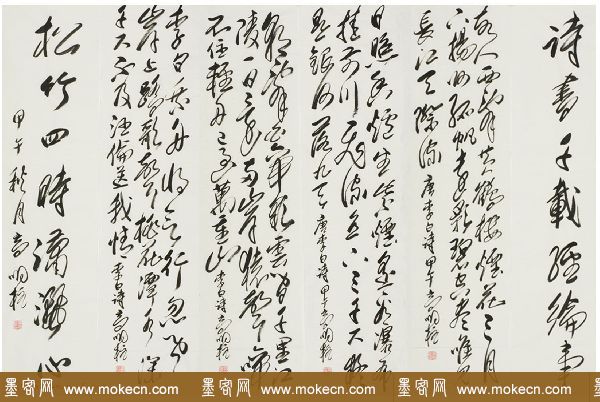 诗書千載經綸事
故人西辞黄鶴楼煙花三月
下揚州孤帆遠影碧空尽唯見
長江天際流 唐李白诗甲午
日照香爐生紫煙遥看瀑布
挂前川飛流直下三千尺疑
是銀河落九天 唐李白诗甲午
朝辞白帝彩雲間千里江
陵一日還两岸猿声啼
不住輕舟已過萬重山 李白诗
李白乘舟将欲行忽闻
岸上踏歌声桃花潭水深
千尺不及汪倫送我情 李白诗
松竹四時瀟灑心
甲午秋月
墨客网 www.mokecn.com 墨客网 www.mokecn.com 墨客网 www.mokecn.com 墨客网 www.mokecn.com